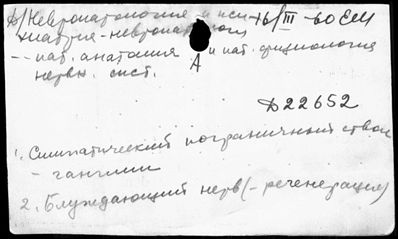 д/Невропатология и пси- 16/III-60 ЕМ
хиатрия - невропатология
-- пат. анатомия и пат. физиология
нервн. сист.
А
Д22652
1. Симпатический пограничный ствол
- ганглии
2. Блуждающий нерв (- регенерация)